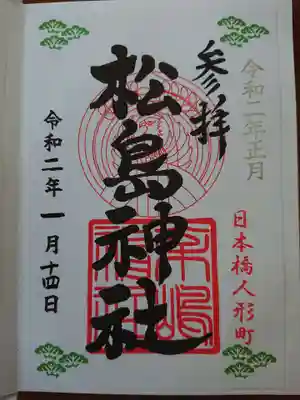 令和二年正月
参拝
日本橋人形町
松島神社
令和二年 一月十四日